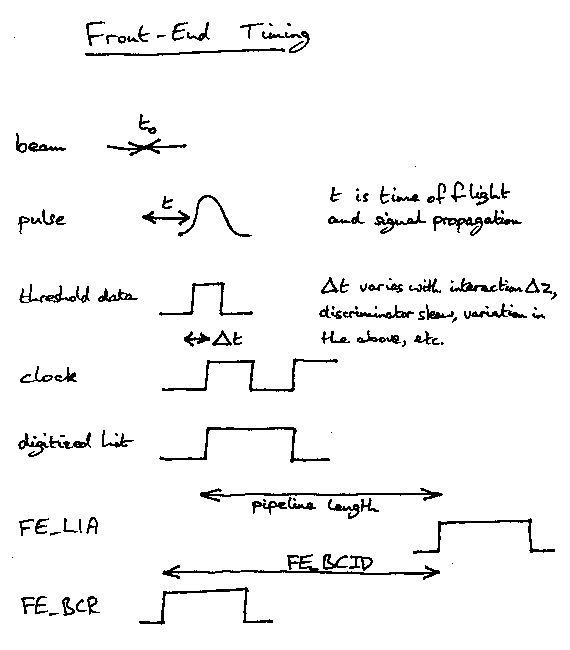 Front-End Timing
beam
t₀
pulse
t
t is time of flight
and signal propagation
threshold data
Δt varies with interaction Δz,
discriminator skew, variation in
the above, etc.
Δt
clock
digitized hit
pipeline length
FE_L1A
FE_BCID
FE_BCR